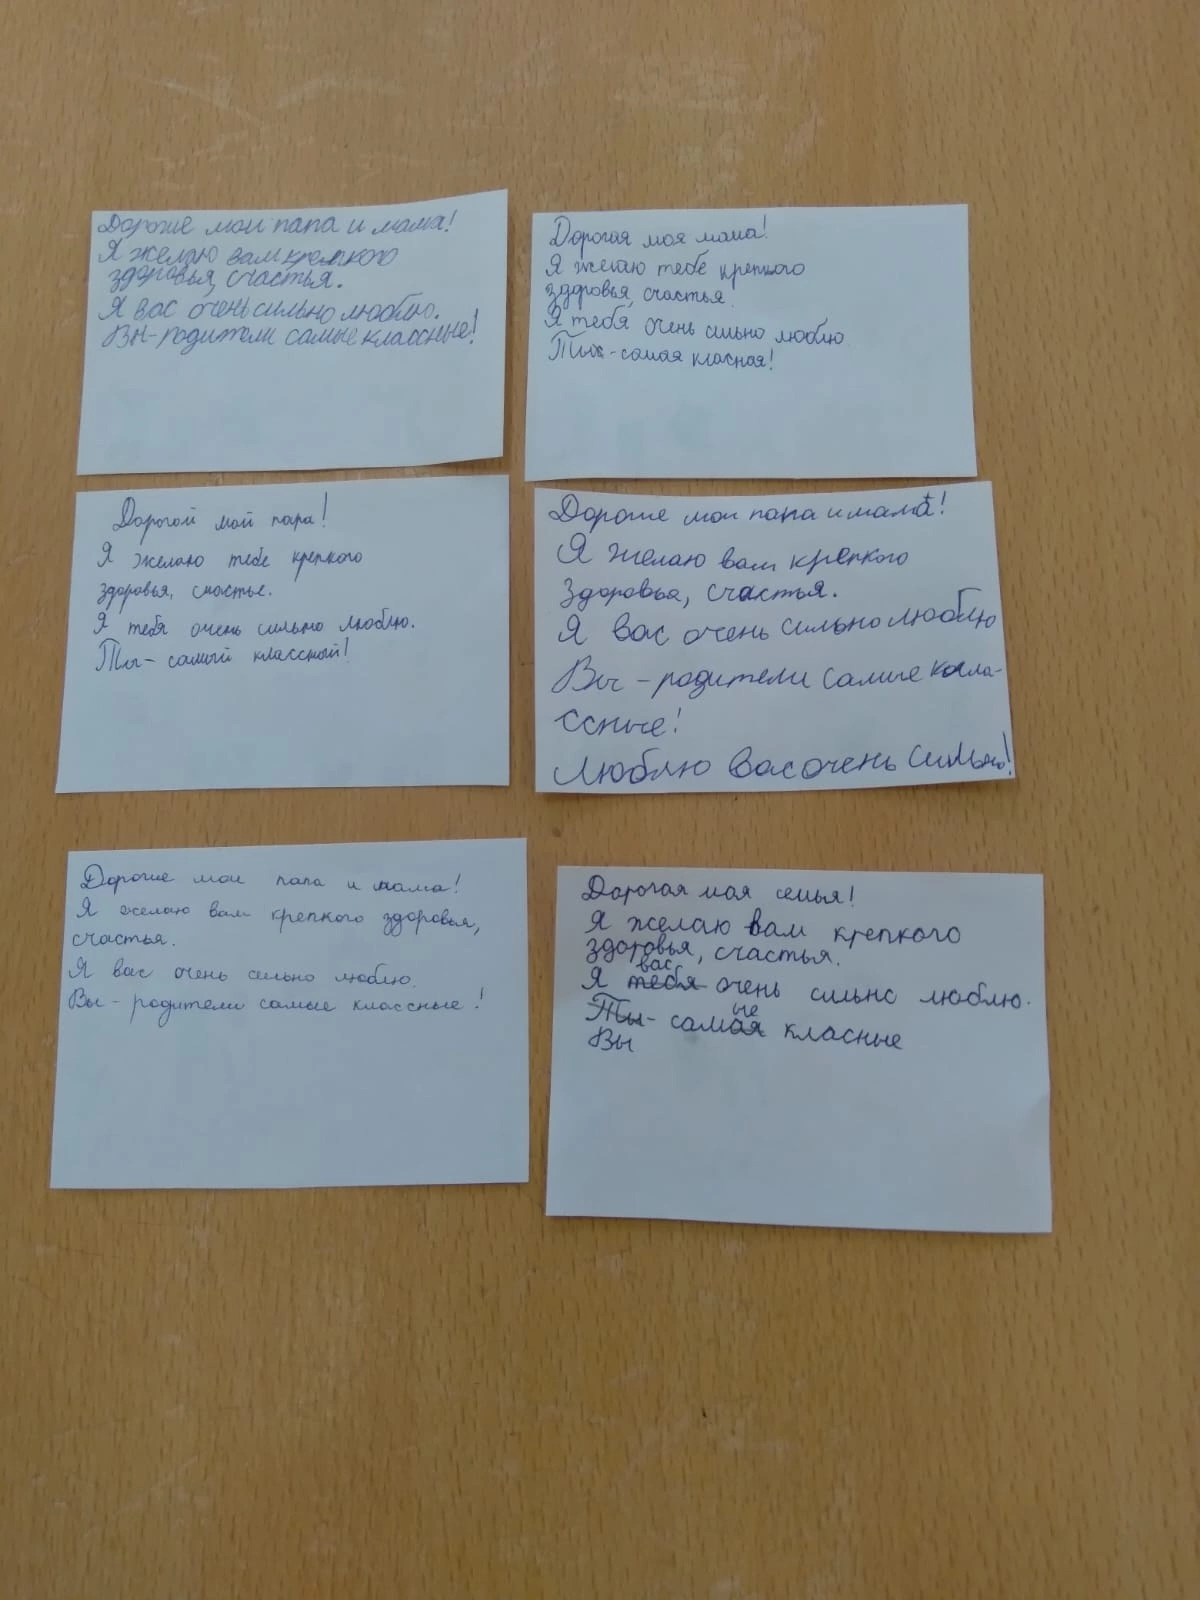 Дорогие мои папа и мама!
Я желаю вам крепкого
здоровья, счастья.
Я вас очень сильно люблю.
Вы-родители самые классные!
Дорогая моя мама!
Я желаю тебе крепкого
здоровья, счастья.
Я тебя очень сильно люблю
Ты-самая класная!
Дорогой мой папа!
Я желаю тебе крепкого
здоровья, счастье.
Я тебя очень сильно люблю.
Ты-самый классный!
Дорогие мои папа и мама!
Я желаю вам крепкого
здоровья, счастья.
Я вас очень сильно люблю
Вы-родители самые кла-
ссные!
Люблю вас очень сильно!
Дорогие мои папа и мама!
Я желаю вам крепкого здоровья,
счастья.
Я вас очень сильно люблю.
Вы-родители самые классные!
Дорогая моя семья!
Я желаю вам крепкого
здоровья, счастья.
вас
Я тебя очень сильно люблю.
ые
Ты-самая класные
Вы